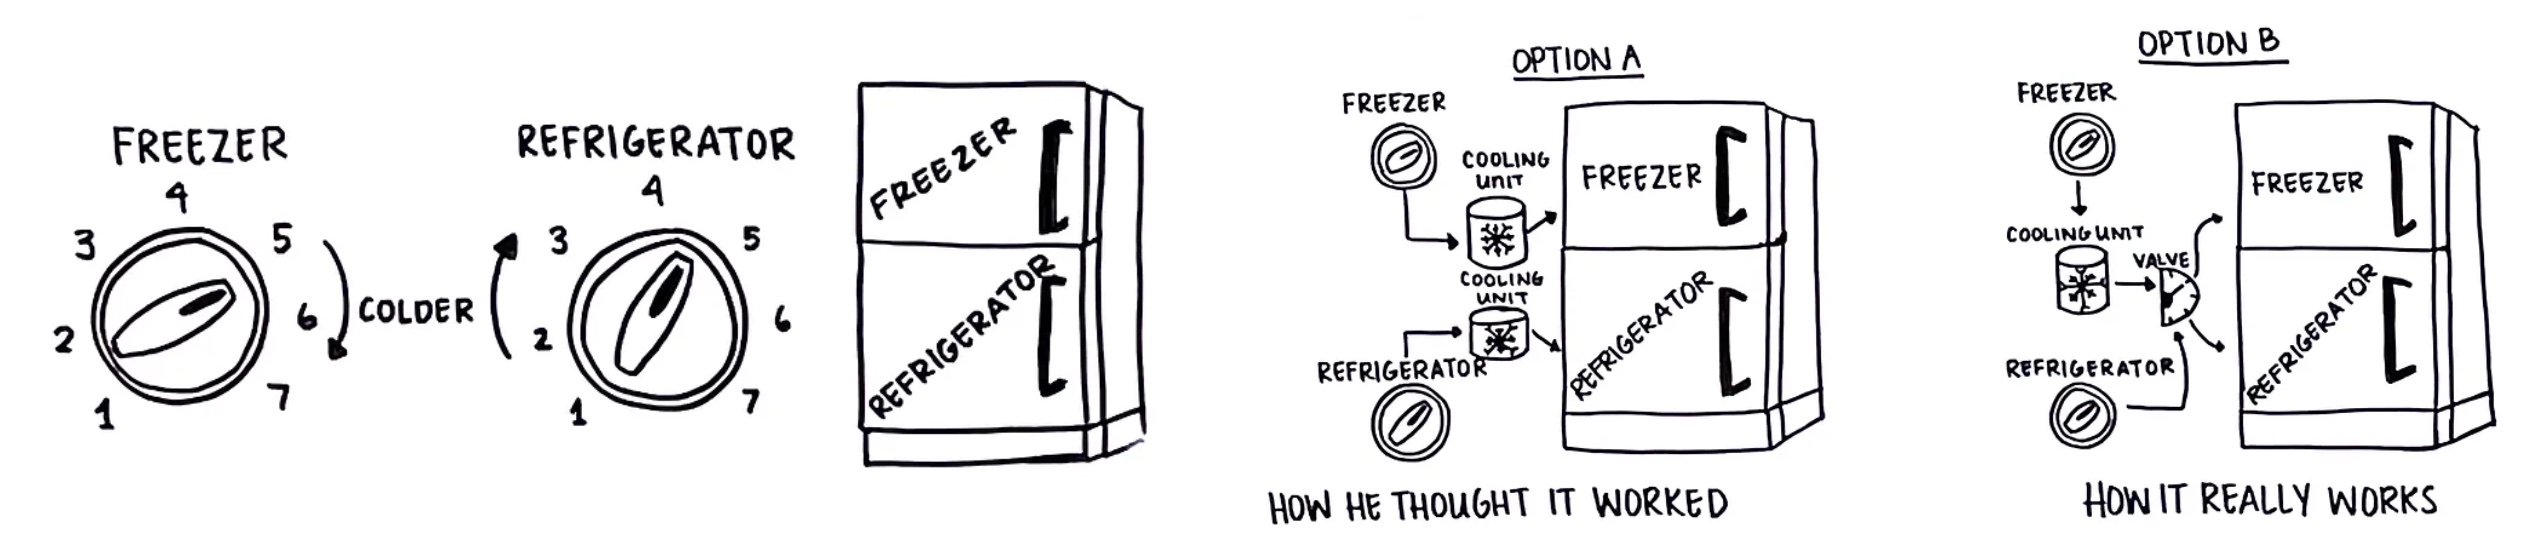 FREEZER
4
3
5
2
6
1
7
COLDER
REFRIGERATOR
4
3
5
2
6
1
7
FREEZER
REFRIGERATOR
OPTION A
FREEZER
COOLING
UNIT
COOLING
UNIT
REFRIGERATOR
FREEZER
REFRIGERATOR
HOW HE THOUGHT IT WORKED
OPTION B
FREEZER
COOLING UNIT
VALVE
REFRIGERATOR
FREEZER
REFRIGERATOR
HOW IT REALLY WORKS